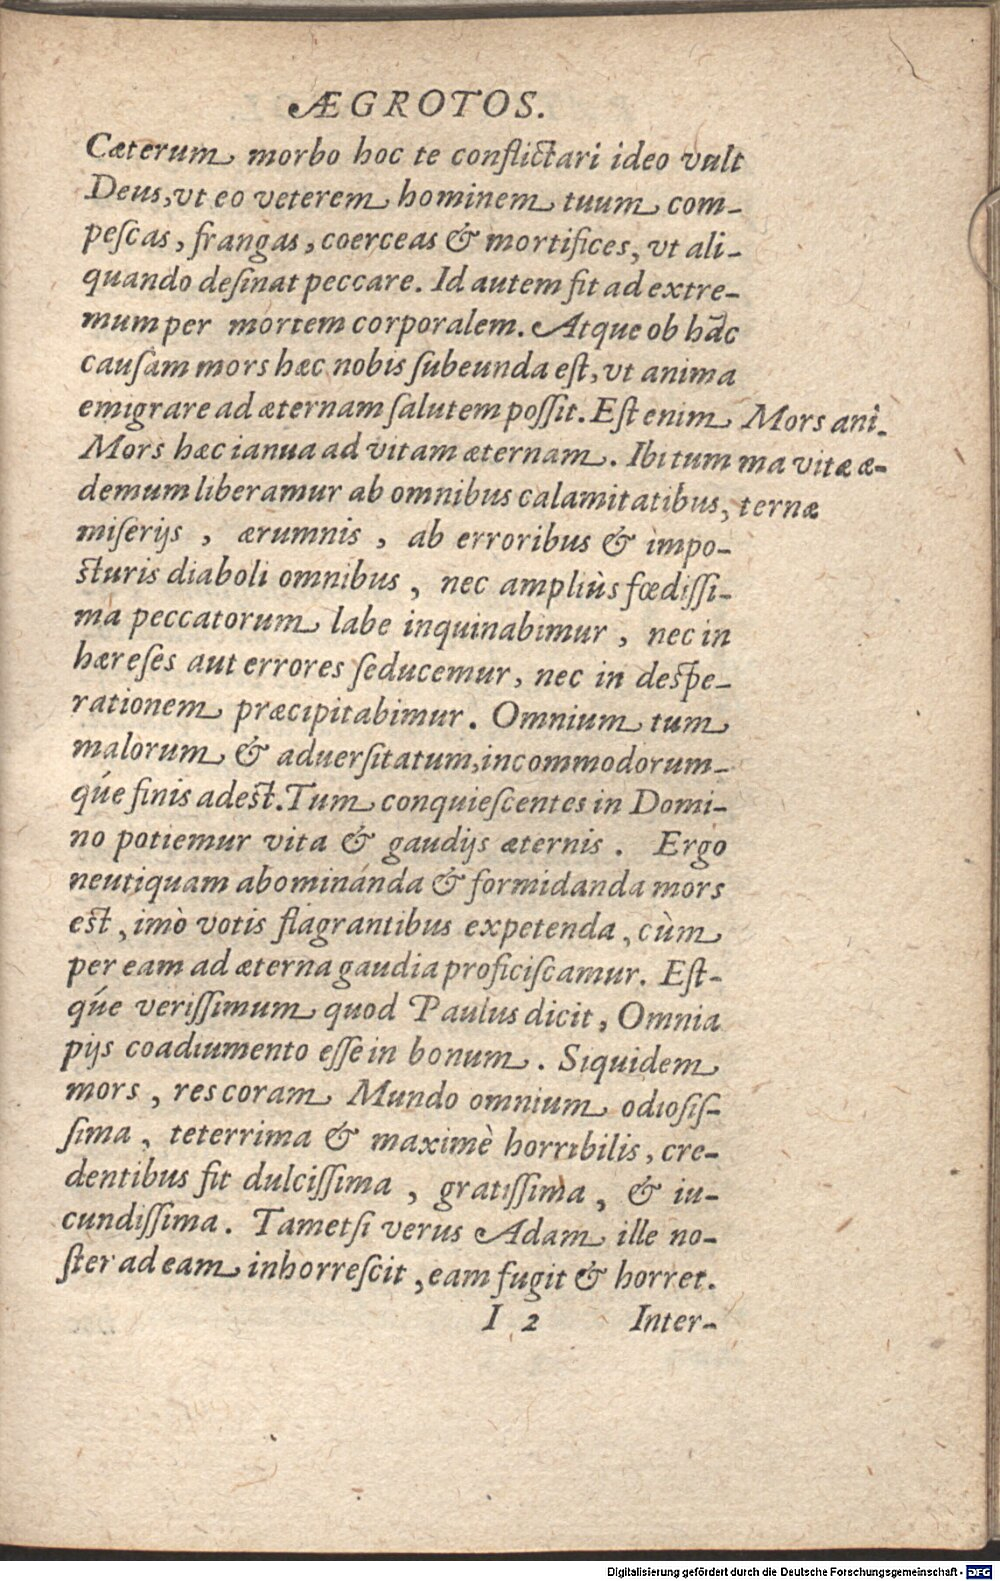 ÆGROTOS.
Cæterum morbo hoc te conflictari ideo vult
Deus, vt eo veterem hominem tuum com-
peſcas, frangas, coerceas & mortifices, vt ali-
quando deſinat peccare. Id autem fit ad extre-
mum per mortem corporalem. Atque ob hāc
cauſam mors hæc nobis ſubeunda eſt, vt anima
emigrare ad æternam ſalutem poſſit. Eſt enim
Mors hæc ianua ad vitam æternam. Ibi tum
demum liberamur ab omnibus calamitatibus,
miſerijs, ærumnis, ab erroribus & impo-
ſturis diaboli omnibus, nec ampliùs fœdiſſi-
ma peccatorum labe inquinabimur, nec in
hæreſes aut errores ſeducemur, nec in deſpe-
rationem præcipitabimur. Omnium tum
malorum & aduerſitatum, incommodorum-
q́ue finis adeſt. Tum conquieſcentes in Domi-
no potiemur vita & gaudijs æternis. Ergo
neutiquam abominánda & formidanda mors
eſt, imò votis flagrantibus expetenda, cùm
per eam ad æterna gaudia proficiſcamur. Eſt-
q́ue veriſſimum quod Paulus dicit, Omnia
pijs coadiumento eſſe in bonum. Siquidem
mors, res coram Mundo omnium odioſiſ-
ſima, teterrima & maximè horribilis, cre-
dentibus fit dulciſſima, gratiſſima, & iu-
cundiſſima. Tametſi verus Adam ille no-
ſter ad eam inhorreſcit, eam fugit & horret.
I 2 Inter-
Mors anì.
ma vitæ æ-
ternæ
Digitalisierung gefördert durch die Deutsche Forschungsgemeinschaft - DFG